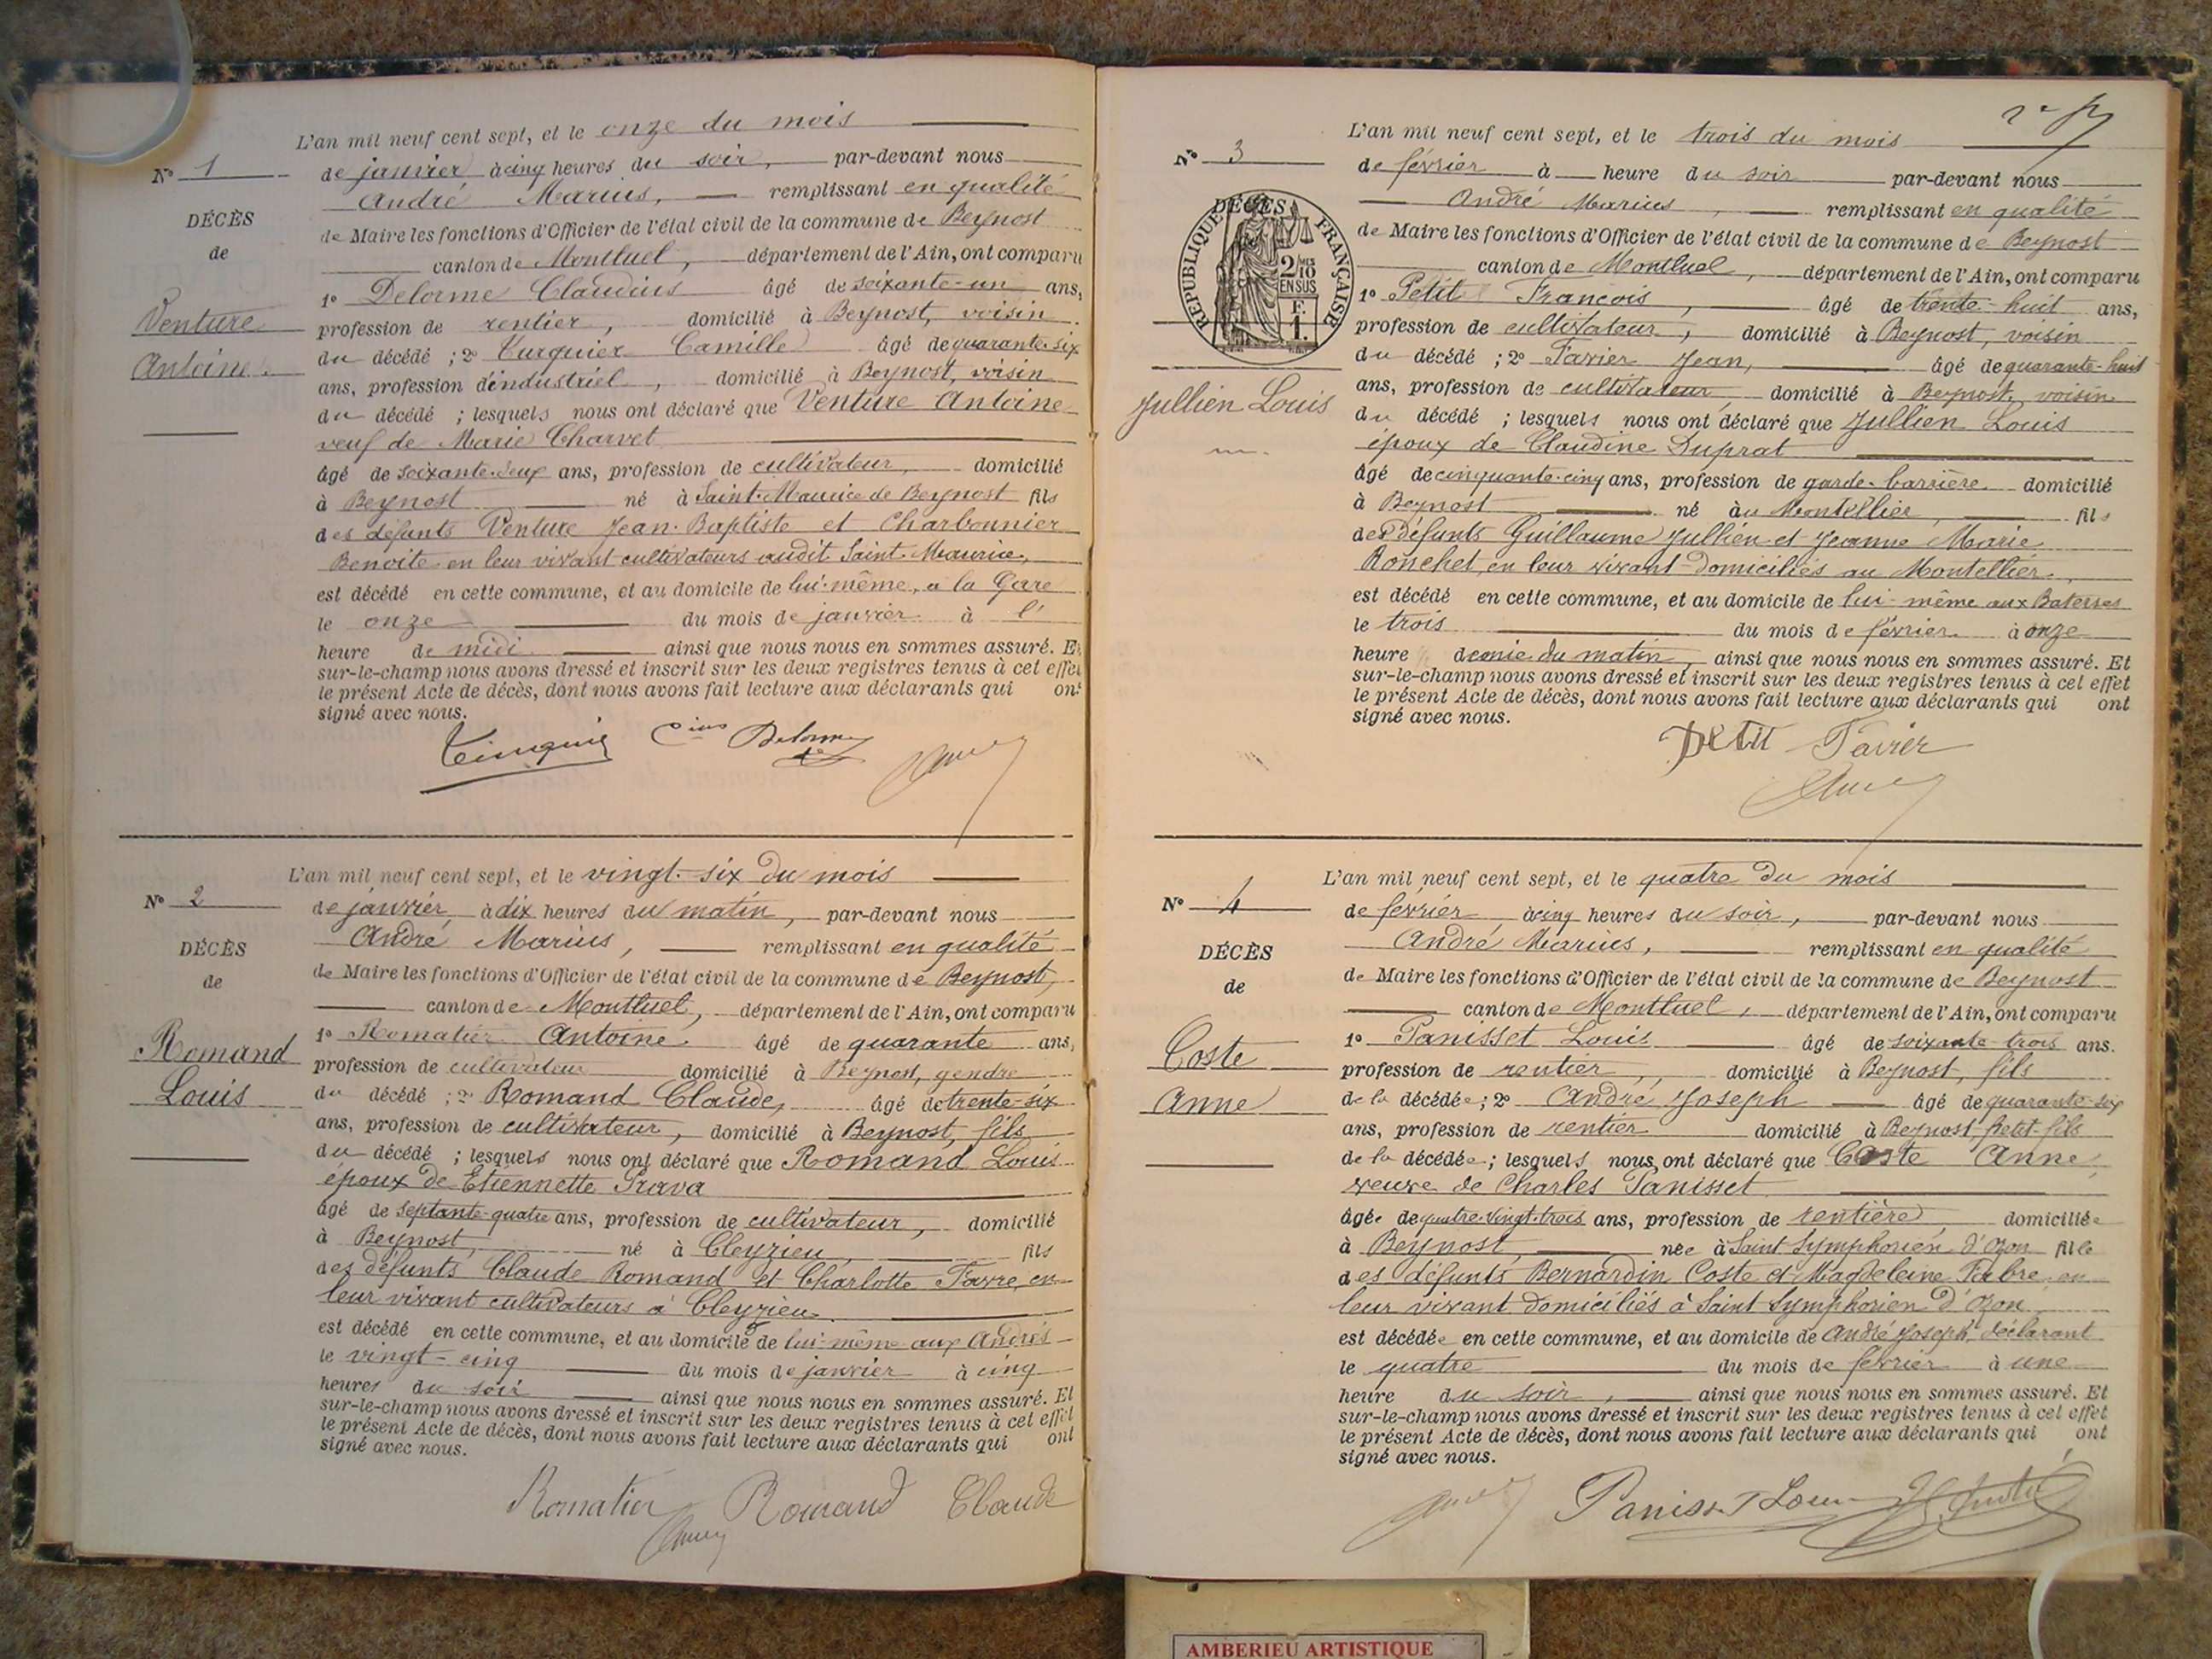 L'an mil neuf cent sept, et le onze du mois
N° 1
de janvier à cinq heures du soir, par-devant nous
André Marius, remplissant en qualité
DÉCÈS
de Maire les fonctions d'Officier de l'état civil de la commune de Beynost
de
canton de Montluel, département de l'Ain, ont comparu
1° Delorme Claudius âgé de soixante-un ans,
Venture
profession de rentier, domicilié à Beynost, voisin
du décédé ; 2° Turquier Camille âgé de quarante-six
Antoine.
ans, profession d'industriel, domicilié à Beynost, voisin
du décédé ; lesquels nous ont déclaré que Venture Antoine
veuf de Marie Charvet
âgé de soixante-deux ans, profession de cultivateur, domicilié
à Beynost né à Saint-Maurice de Beynost fils
des défunts Venture Jean-Baptiste et Charbonnier
Benoite en leur vivant cultivateurs audit Saint-Maurice,
est décédé en cette commune, et au domicile de lui-même, a la Gare
le onze du mois de janvier à l'
heure de midi ainsi que nous nous en sommes assuré. Et
sur-le-champ nous avons dressé et inscrit sur les deux registres tenus à cet effet
le présent Acte de décès, dont nous avons fait lecture aux déclarants qui ont
signé avec nous.
Cius Delorme
L'an mil neuf cent sept, et le vingt-six du mois
N° 2
de janvier, à dix heures du matin, par-devant nous
André Marius, remplissant en qualité
DÉCÈS
de Maire les fonctions d'Officier de l'état civil de la commune de Beynost,
de
canton de Montluel, département de l'Ain, ont comparu
1° Romatier Antoine âgé de quarante ans,
Romand
profession de cultivateur domicilié à Beynost, gendre
Louis
du décédé ; 2° Romand Claude, âgé de trente-six
ans, profession de cultivateur, domicilié à Beynost, fils
du décédé ; lesquels nous ont déclaré que Romand Louis
époux de Etiennette Prava
âgé de septante-quatre ans, profession de cultivateur, domicilié
à Beynost, né à Cleyzieu, fils
des défunts Claude Romand et Charlotte Favre, en
leur vivant cultivateurs à Cleyzieu
est décédé en cette commune, et au domicile de lui-même aux Andrés
le vingt-cinq du mois de janvier à cinq
heures du soir ainsi que nous nous en sommes assuré. Et
sur-le-champ nous avons dressé et inscrit sur les deux registres tenus à cet effet
le présent Acte de décès, dont nous avons fait lecture aux déclarants qui ont
signé avec nous.
Romatier Romand Claude
L'an mil neuf cent sept, et le trois du mois
N° 3
de février à heure du soir par-devant nous
André Marius, remplissant en qualité
DÉCÈS
RÉPUBLIQUE FRANÇAISE
2 MES
10
EN SUS
F.
1.
de Maire les fonctions d'Officier de l'état civil de la commune de Beynost
canton de Montluel, département de l'Ain, ont comparu
1° Petit François, âgé de trente-huit ans,
profession de cultivateur, domicilié à Beynost, voisin
du décédé ; 2° Favier Jean, âgé de quarante-huit
Jullien Louis
ans, profession de cultivateur, domicilié à Beynost, voisin
du décédé ; lesquels nous ont déclaré que Jullien Louis
époux de Claudine Duprat
âgé de cinquante-cinq ans, profession de garde-barrière domicilié
à Beynost né au Montellier, fils
des défunts Guillaume Jullien et Jeanne Marie
Ronchet, en leur vivant domiciliés au Montellier.
est décédé en cette commune, et au domicile de lui-même aux Baterses
le trois du mois de février à onze
heure demie du matin, ainsi que nous nous en sommes assuré. Et
sur-le-champ nous avons dressé et inscrit sur les deux registres tenus à cet effet
le présent Acte de décès, dont nous avons fait lecture aux déclarants qui ont
signé avec nous.
Petit Favier
L'an mil neuf cent sept, et le quatre du mois
N° 4
de février à cinq heures du soir, par-devant nous
André Marius, remplissant en qualité
DÉCÈS
de Maire les fonctions d'Officier de l'état civil de la commune de Beynost
de
canton de Montluel, département de l'Ain, ont comparu
1° Panisset Louis âgé de soixante-trois ans.
Coste
profession de rentier, domicilié à Beynost, fils
Anne
de la décédée ; 2° André Joseph âgé de quarante-six
ans, profession de rentier domicilié à Beynost, petit-fils
de la décédée ; lesquels nous ont déclaré que Coste Anne,
veuve de Charles Panisset
âgée de quatre-vingt-trois ans, profession de rentière, domiciliée
à Beynost, née à Saint Symphorien d'Ozon fille
des défunts Bernardin Coste et Magdeleine Fabre en
leur vivant domiciliés à Saint Symphorien d'Ozon
est décédée en cette commune, et au domicile de André Joseph, déclarant
le quatre du mois de février à une
heure du soir, ainsi que nous nous en sommes assuré. Et
sur-le-champ nous avons dressé et inscrit sur les deux registres tenus à cet effet
le présent Acte de décès, dont nous avons fait lecture aux déclarants qui ont
signé avec nous.
Panisset Louis
AMBERIEU ARTISTIQUE